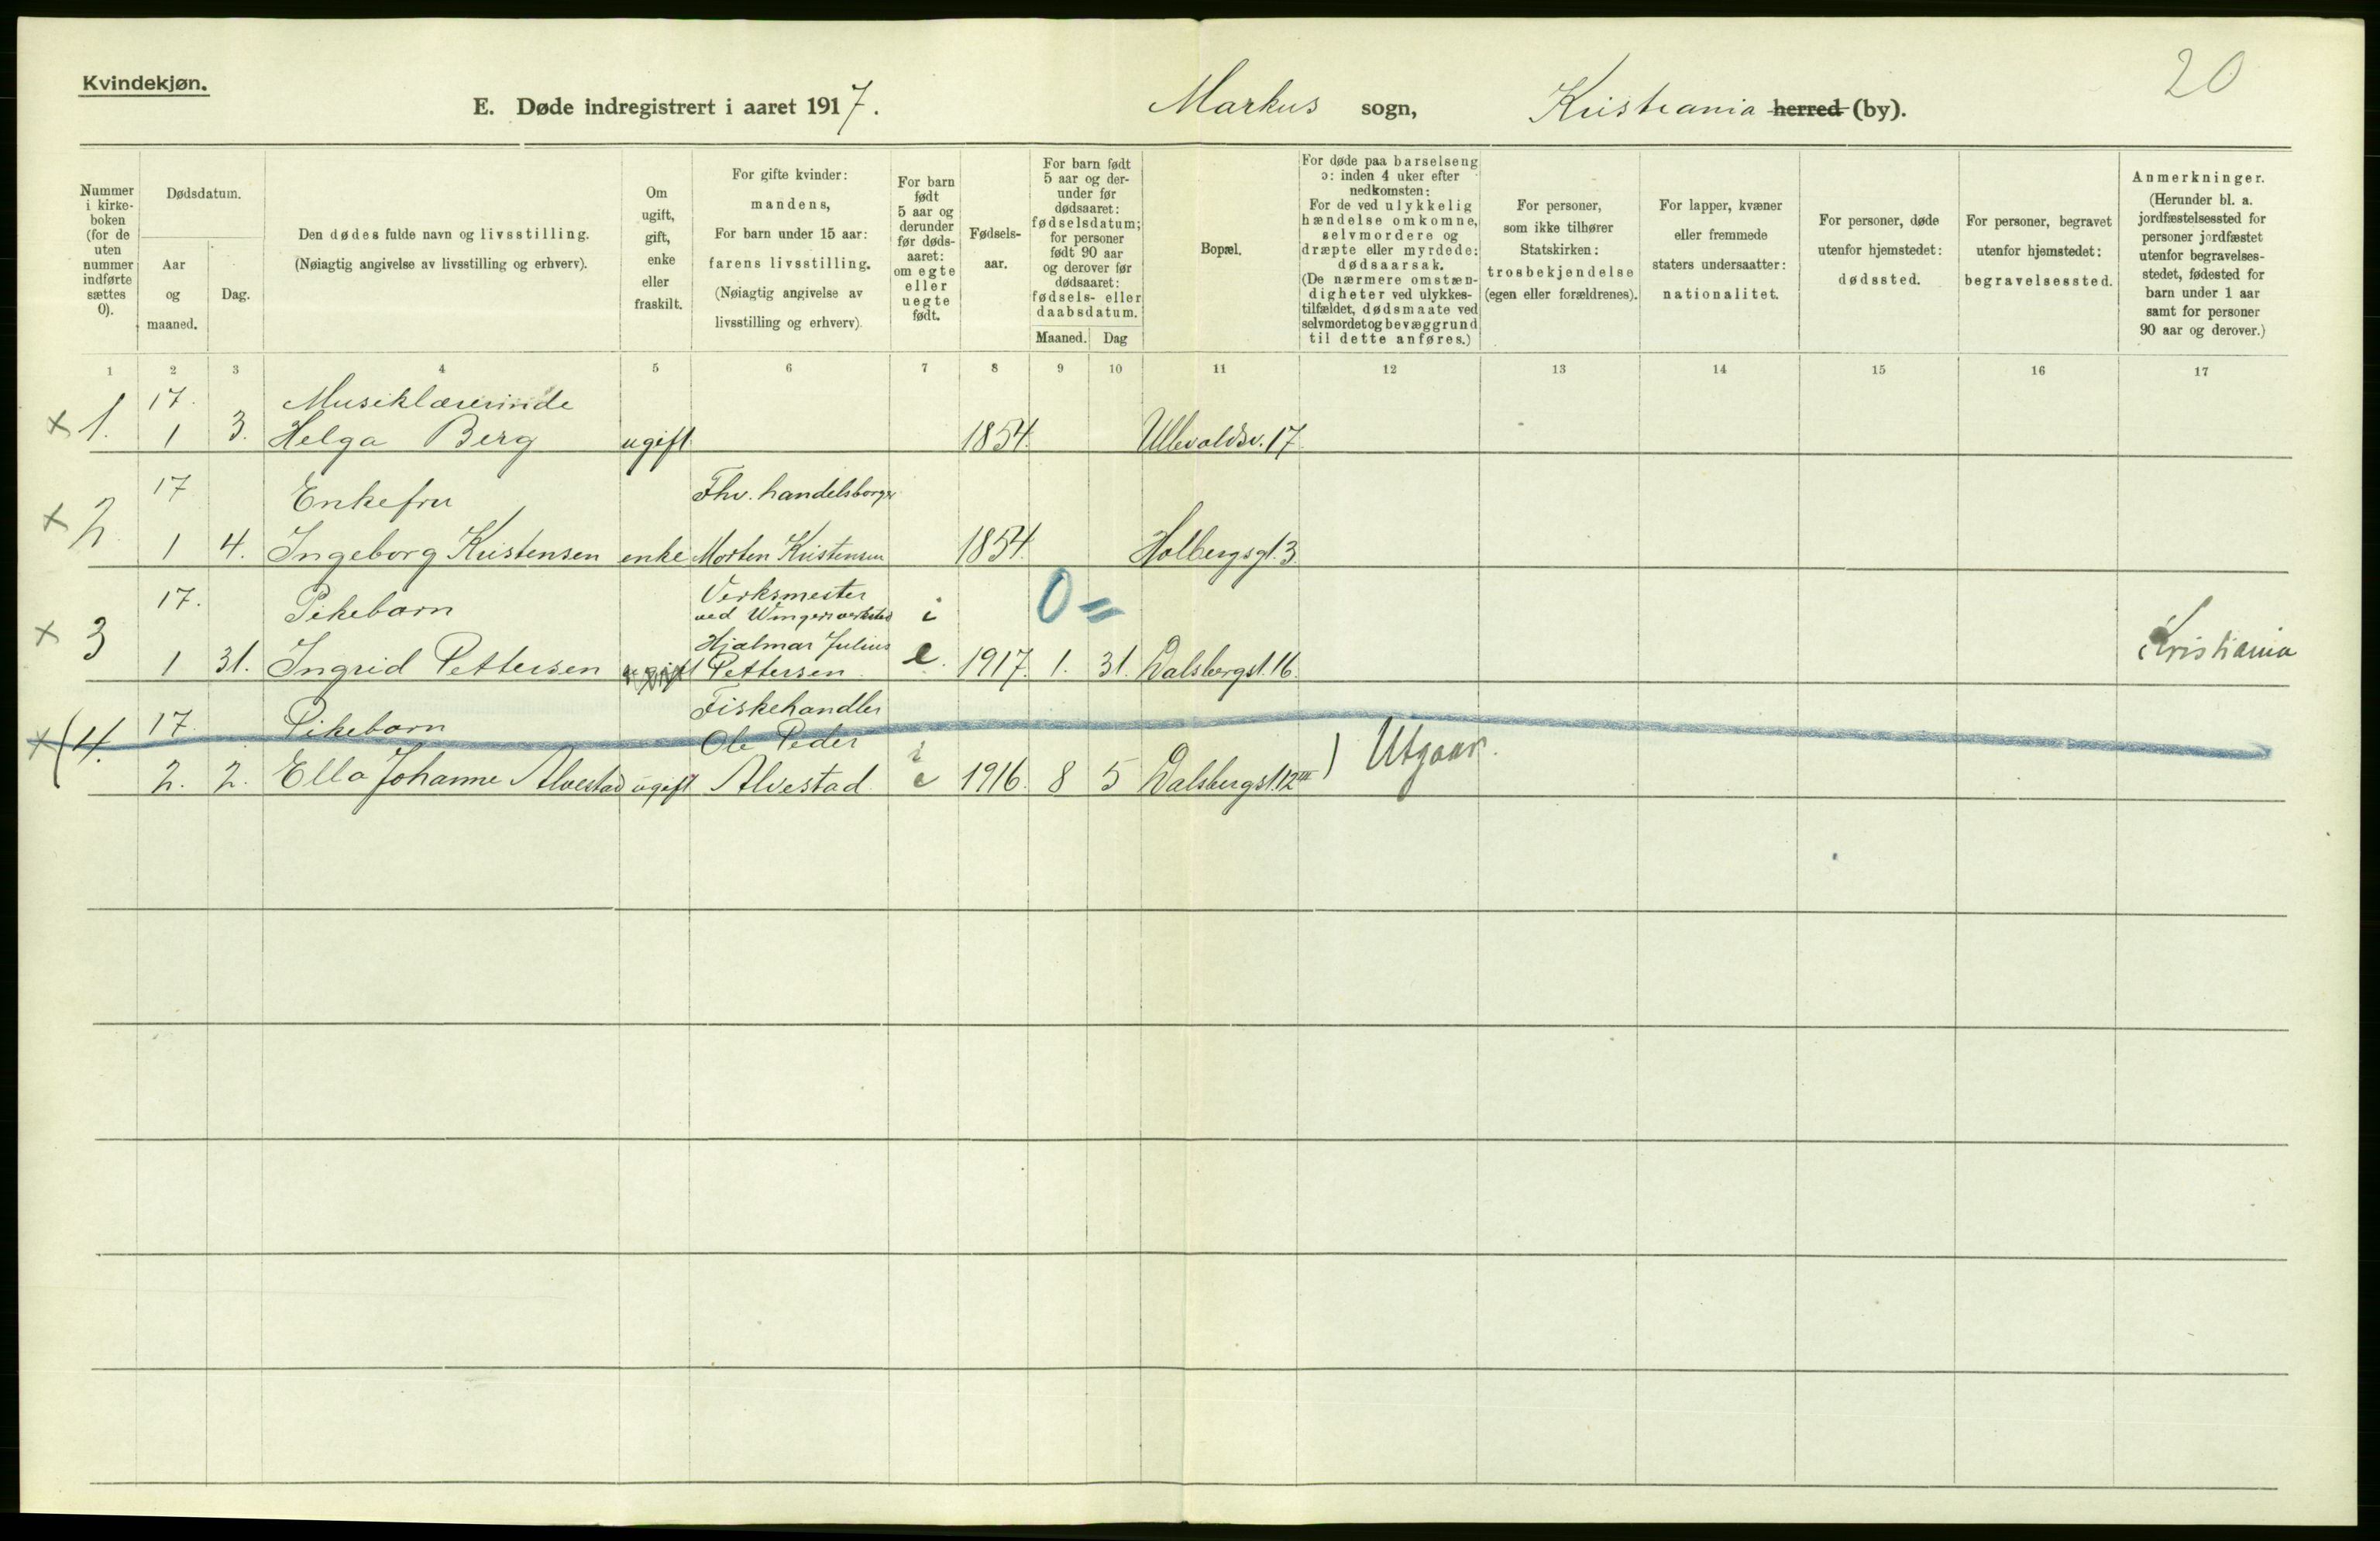 Kvindekjøn.
20
E. Døde indregistrert i aaret 1917. Markus sogn, Kristiania herred (by).
Nummer i kirke- boken (for de uten nummer indførte sættes 0).
Dødsdatum.
Aar og maaned.
Dag.
Den dødes fulde navn og livsstilling.
(Nøiagtig angivelse av livsstilling og erhverv).
Om ugift, gift, enke eller fraskilt.
For gifte kvinder: mandens,
For barn under 15 aar: farens livsstilling.
(Nøiagtig angivelse av livsstilling og erhverv).
For barn født 5 aar og derunder før døds- aaret: om egte eller uegte født.
Fødsels- aar.
For barn født 5 aar og der- under før dødsaaret: fødselsdatum; for personer født 90 aar og derover før dødsaaret: fødsels- eller daabsdatum.
Maaned. Dag
Bopæl.
For døde paa barselseng ɔ: inden 4 uker efter nedkomsten:
For de ved ulykkelig hændelse omkomne, selvmordere og dræpte eller myrdede: dødsaarsak.
(De nærmere omstæn- digheter ved ulykkes- tilfældet, dødsmaate ved selvmordet og bevæggrund til dette anføres.)
For personer, som ikke tilhører Statskirken: trosbekjendelse (egen eller forældrenes).
For lapper, kvæner eller fremmede staters undersaatter: nationalitet.
For personer, døde utenfor hjemstedet: dødssted.
For personer, begravet utenfor hjemstedet: begravelsessted.
Anmerkninger.
(Herunder bl. a. jordfæstelsessted for personer jordfæstet utenfor begravelses- stedet, fødested for barn under 1 aar samt for personer 90 aar og derover.)
1 2 3 4 5 6 7 8 9 10 11 12 13 14 15 16 17
17. Musiklærerinde
x 1. 1 3. Helga Berg ugift 1854. Ullevoldsv. 17
17 Enkefru Fhv. handelsborger
x 2. 1 4. Ingeborg Kristensen enke Morten Kristensen 1854. Holbergsgt. 3.
17. Pikebarn Verksmester i 0 =
ved Wingers verksted
x 3 Hjalmar Julius
1 31. Ingrid Pettersen ugift Pettersen e. 1917. 1. 31. Dalsbergst. 16. Kristiania
17. Pikebarn Fiskehandler
x (4. Ole Peder i ) Utgaar.
2. 2. Ella Johanne Alvestad ugift Alvestad e 1916. 8 5 Dalsbergst. 12 III